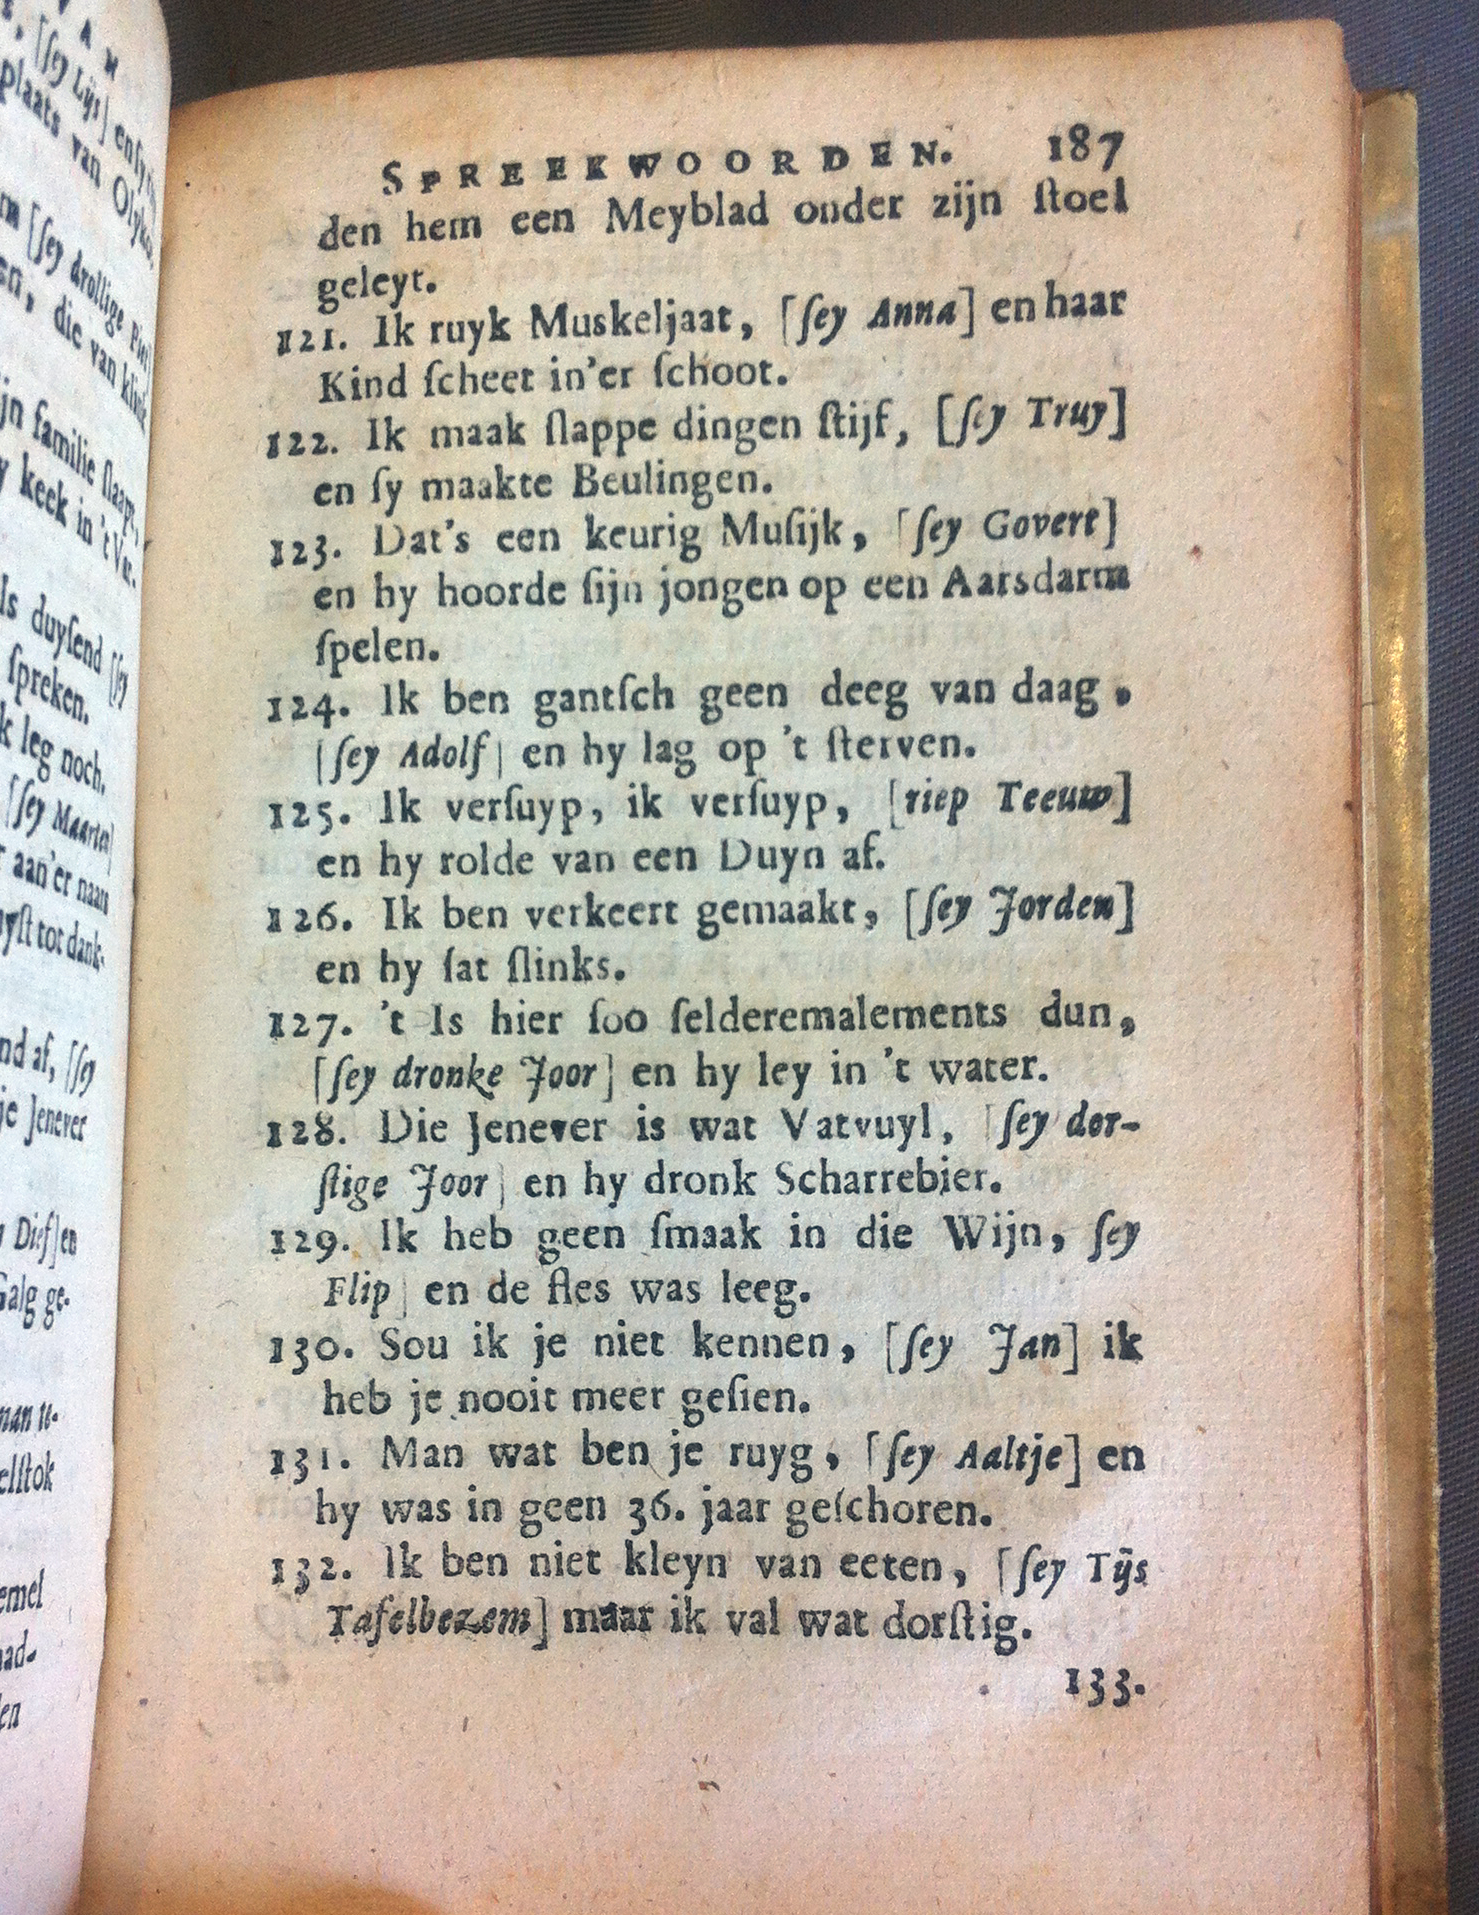 SPREEKWOORDEN. 187
den hem een Meyblad onder zijn ſtoel
geleyt.
121. Ik ruyk Muskeljaat, [ſey Anna] en haar
Kind ſcheet in'er ſchoot.
122. Ik maak ſlappe dingen ſtijf, [ſey Truy]
en ſy maakte Beulingen.
123. Dat's een keurig Muſijk, [ſey Govert]
en hy hoorde ſijn jongen op een Aarsdarm
ſpelen.
124. Ik ben gantſch geen deeg van daag,
[ſey Adolf] en hy lag op 't ſterven.
125. Ik verſuyp, ik verſuyp, [riep Teeuw]
en hy rolde van een Duyn af.
126. Ik ben verkeert gemaakt, [ſey Jorden]
en hy ſat ſlinks.
127. 't Is hier ſoo ſelderemalements dun,
[ſey dronke Joor] en hy ley in 't water.
128. Die Jenever is wat Vatvuyl, [ſey dor-
ſtige Joor] en hy dronk Scharrebier.
129. Ik heb geen ſmaak in die Wijn, ſey
Flip] en de fles was leeg.
130. Sou ik je niet kennen, [ſey Jan] ik
heb je nooit meer geſien.
131. Man wat ben je ruyg, [ſey Aaltje] en
hy was in geen 36. jaar geſchoren.
132. Ik ben niet kleyn van eeten, [ſey Tijs
Tafelbezem] maar ik val wat dorſtig.
133.
VAN
[ſey Lijs]
plaats van
[ſey drollige
en, die van
familie
keek in 't
duyſend [ſey
ſpreken.
leg noch.
[ſey Maarten]
aan'er naam
tot dank-
af, [ſey
je Jenever
Dief] en
Galg ge-